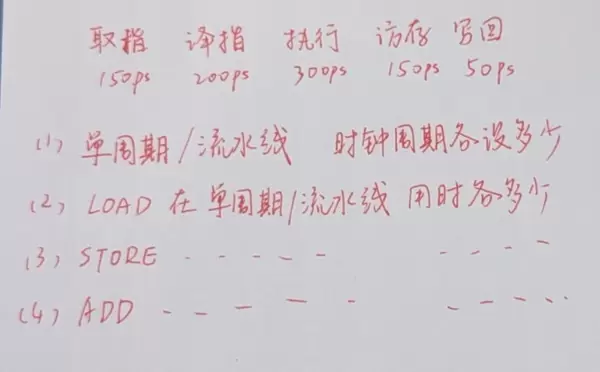 取指 译指 执行 访存 写回
150ps 200ps 300ps 150ps 50ps
(1) 单周期/流水线 时钟周期各设多少
(2) LOAD 在单周期/流水线 用时各多少
(3) STORE - - - - - - - - -
(4) ADD - - - - - - - - - -